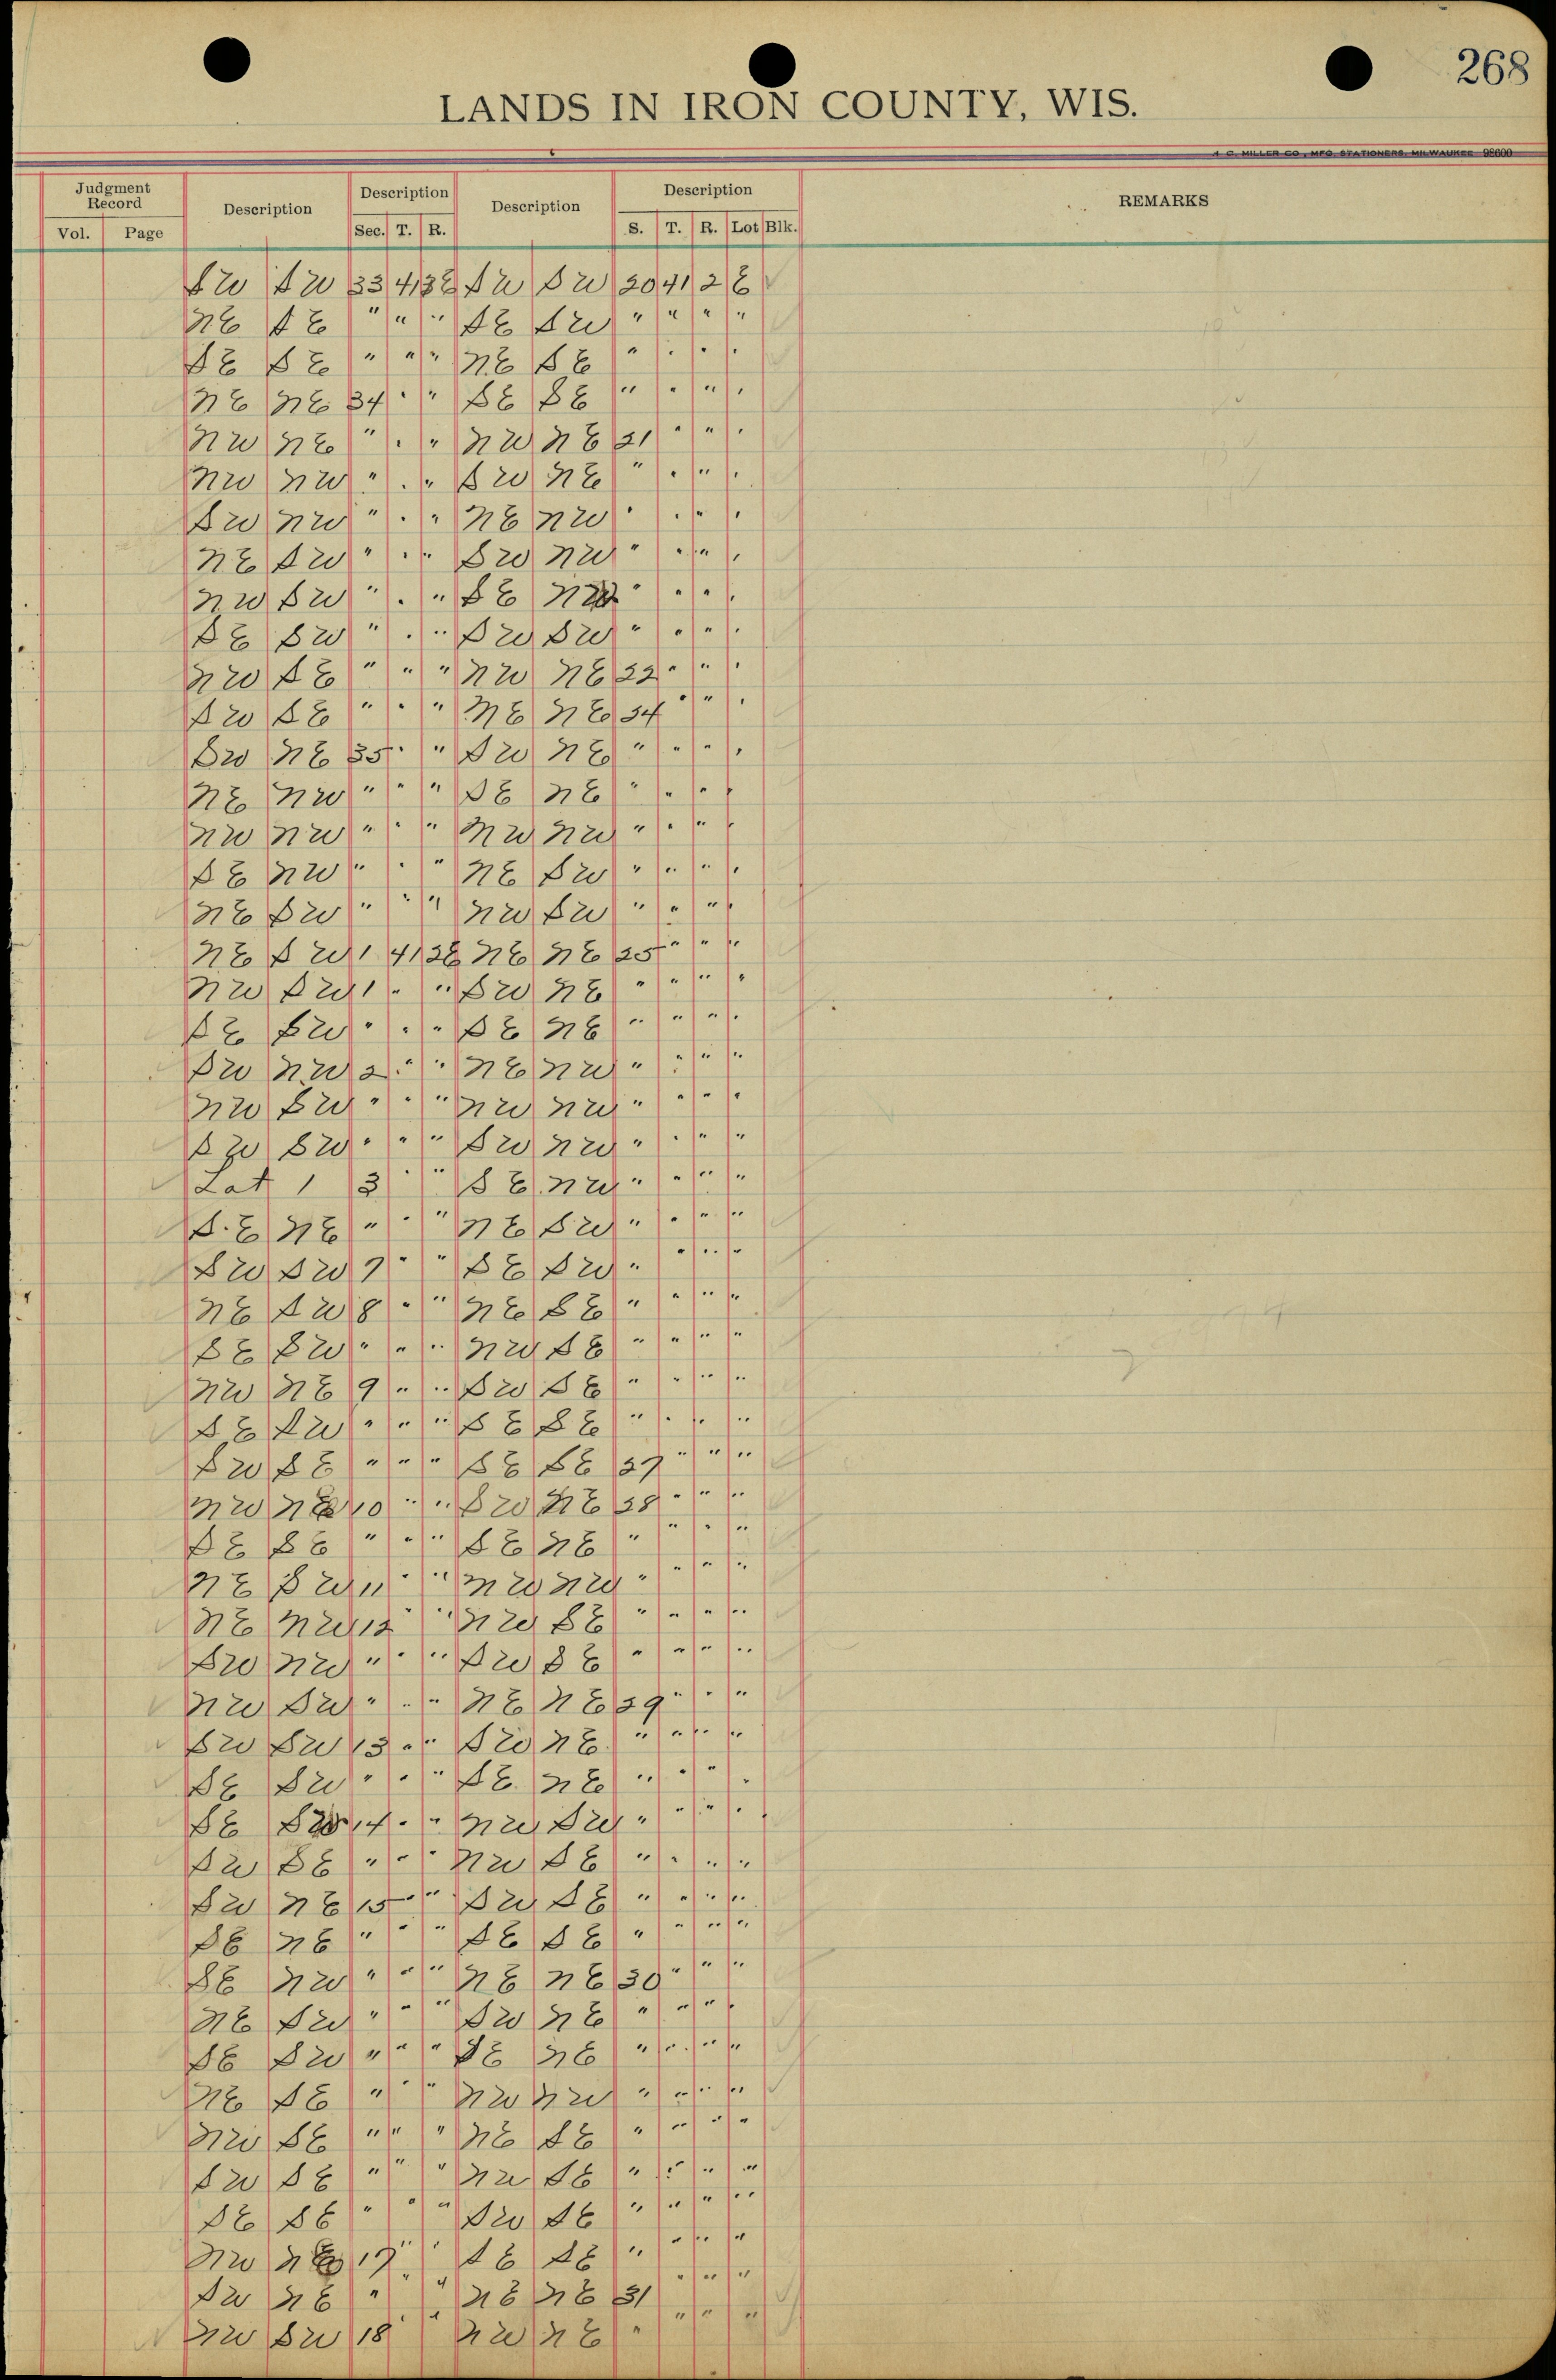 268
LANDS IN IRON COUNTY, WIS.
Judgment Record Description Description Description Description REMARKS
Vol. Page Sec. T. R. S. T. R. Lot Blk.
SW SW 33 41 3E SW SW 20 41 2 E
NE SE " " " SE SW " " " "
SE SE " " " NE SE " " " "
NE NE 34 " " SE SE " " " "
NW NE " " " NW NE 21 " " "
NW NW " " " SW NE " " " "
SW NW " " " NE NW " " " "
NE SW " " " SW NW " " " "
NW SW " " " SE " " " "
SE SW " " " SW SW " " " "
NW SE " " " NW NE 22 " " "
SW SE " " " NE NE 24 " " "
SW NE 35 " " SW NE " " " "
NE NW " " " SE NE " " " "
NW NW " " " NW NW " " " "
SE NW " " " NE SW " " " "
NE SW " " " NW SW " " " "
NE SW 1 41 2E NE NE 25 " " "
NW SW 1 " " SW NE " " " "
SE SW " " " SE NE " " " "
SW NW 2 " " NE NW " " " "
NW SW " " " NW NW " " " "
SW SW " " " SW NW " " " "
Lot 1 3 " " SE NW " " " "
S.E NE " " " NE SW " " " "
SW SW 7 " " SE SW " " " "
NE SW 8 " " NE SE " " " "
SE SW " " " NW SE " " " "
NW NE 9 " " SW SE " " " "
SE SW " " " SE SE " " " "
SW SE " " " SE SE 27 " " "
NW NE 10 " " SW NE 28 " " "
SE SE " " " SE NE " " " "
NE SW 11 " " NW NW " " " "
NE NW 12 " " NW SE " " " "
SW NW " " " SW SE " " " "
NW SW " " " NE NE 29 " " "
SW SW 13 " " SW NE " " " "
SE SW " " " SE NE " " " "
SE SW 14 " " NW SW " " " "
SW SE " " " NW SE " " " "
SW NE 15 " " SW SE " " " "
SE NE " " " SE SE " " " "
SE NW " " " NE NE 30 " " "
NE SW " " " SW NE " " " "
SE SW " " " SE NE " " " "
NE SE " " " NW NW " " " "
NW SE " " " NE SE " " " "
SW SE " " " NW SE " " " "
SE SE " " " SW SE " " " "
NW NE 17 " " SE SE " " " "
SW NE " " " NE NE 31 " " "
NW SW 18 " NW NE " " " "